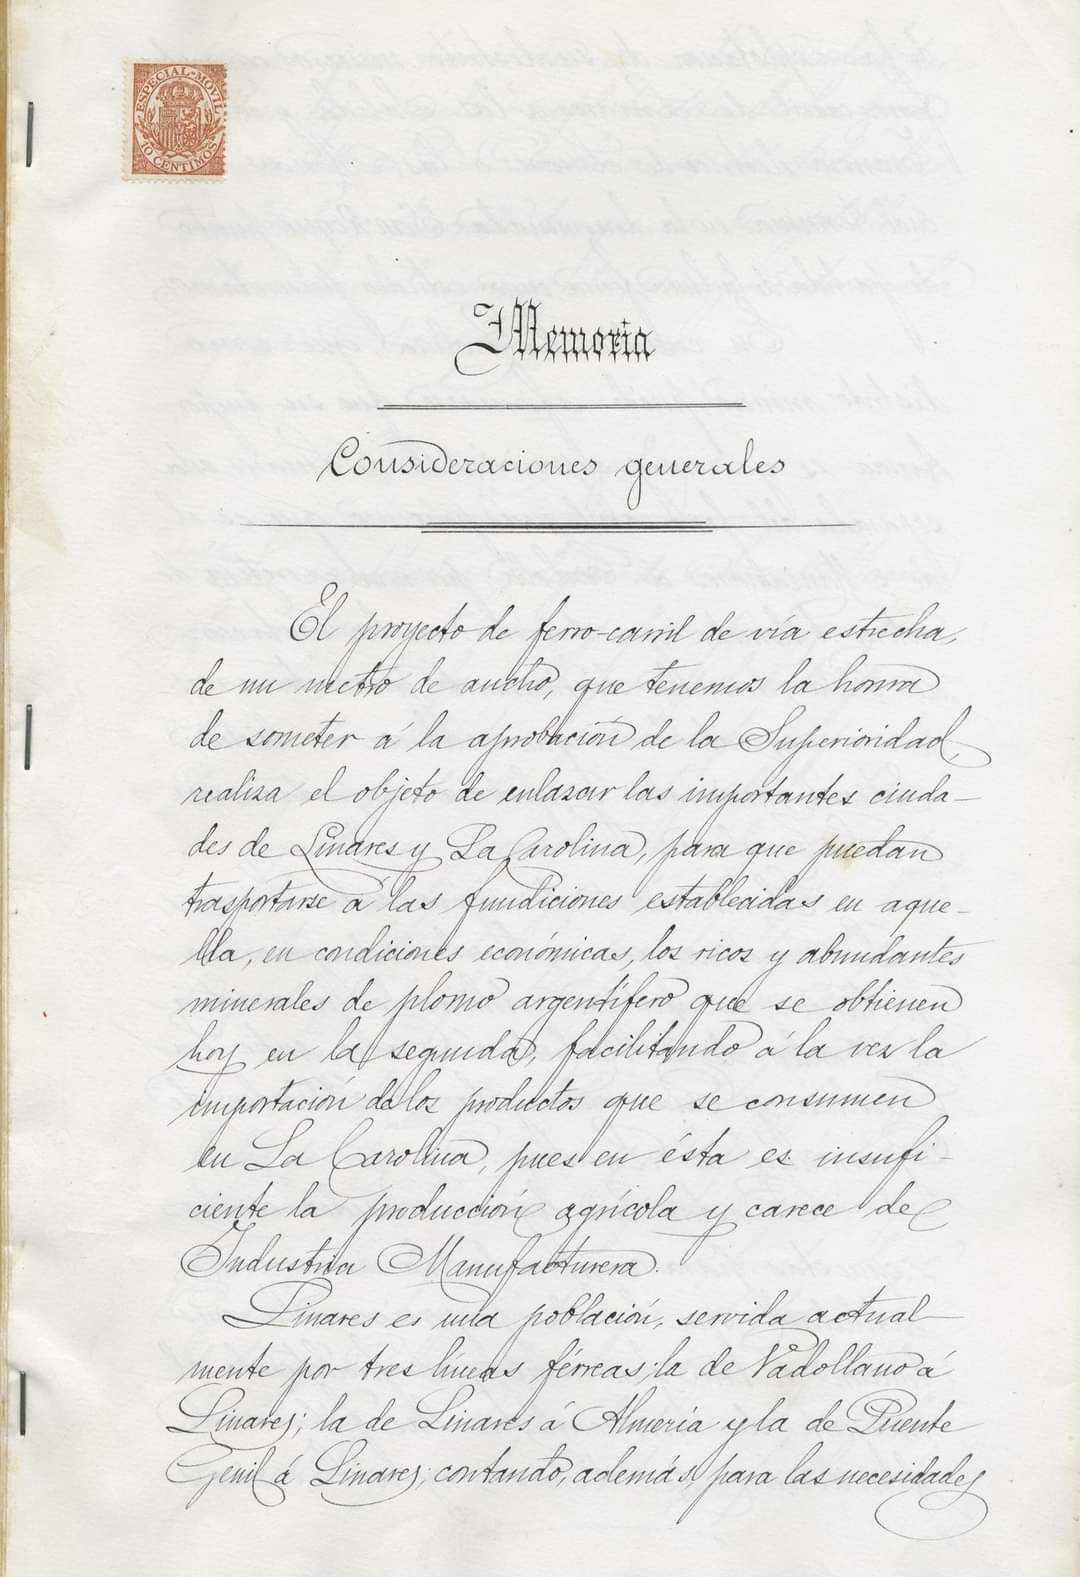 ESPECIAL-MÓVIL
10 CENTIMOS
Memoria
Consideraciones generales
El proyecto de ferro-carril de vía estrecha,
de un metro de ancho, que tenemos la honra
de someter á la aprobación de la Superioridad,
realiza el objeto de enlazar las importantes ciuda-
des de Linares y La Carolina, para que puedan
trasportarse á las fundiciones establecidas en aque-
lla, en condiciones económicas, los ricos y abundantes
minerales de plomo argentífero que se obtienen
hoy en la segunda, facilitando á la vez la
importación de los productos que se consumen
en La Carolina, pues en ésta es insufi-
ciente la producción agrícola y carece de
Industria Manufacturera.
Linares es una población, servida actual-
mente por tres líneas férreas; la de Vadollano á
Linares; la de Linares á Almería y la de Puente
Genil á Linares; contando, además, para las necesidades